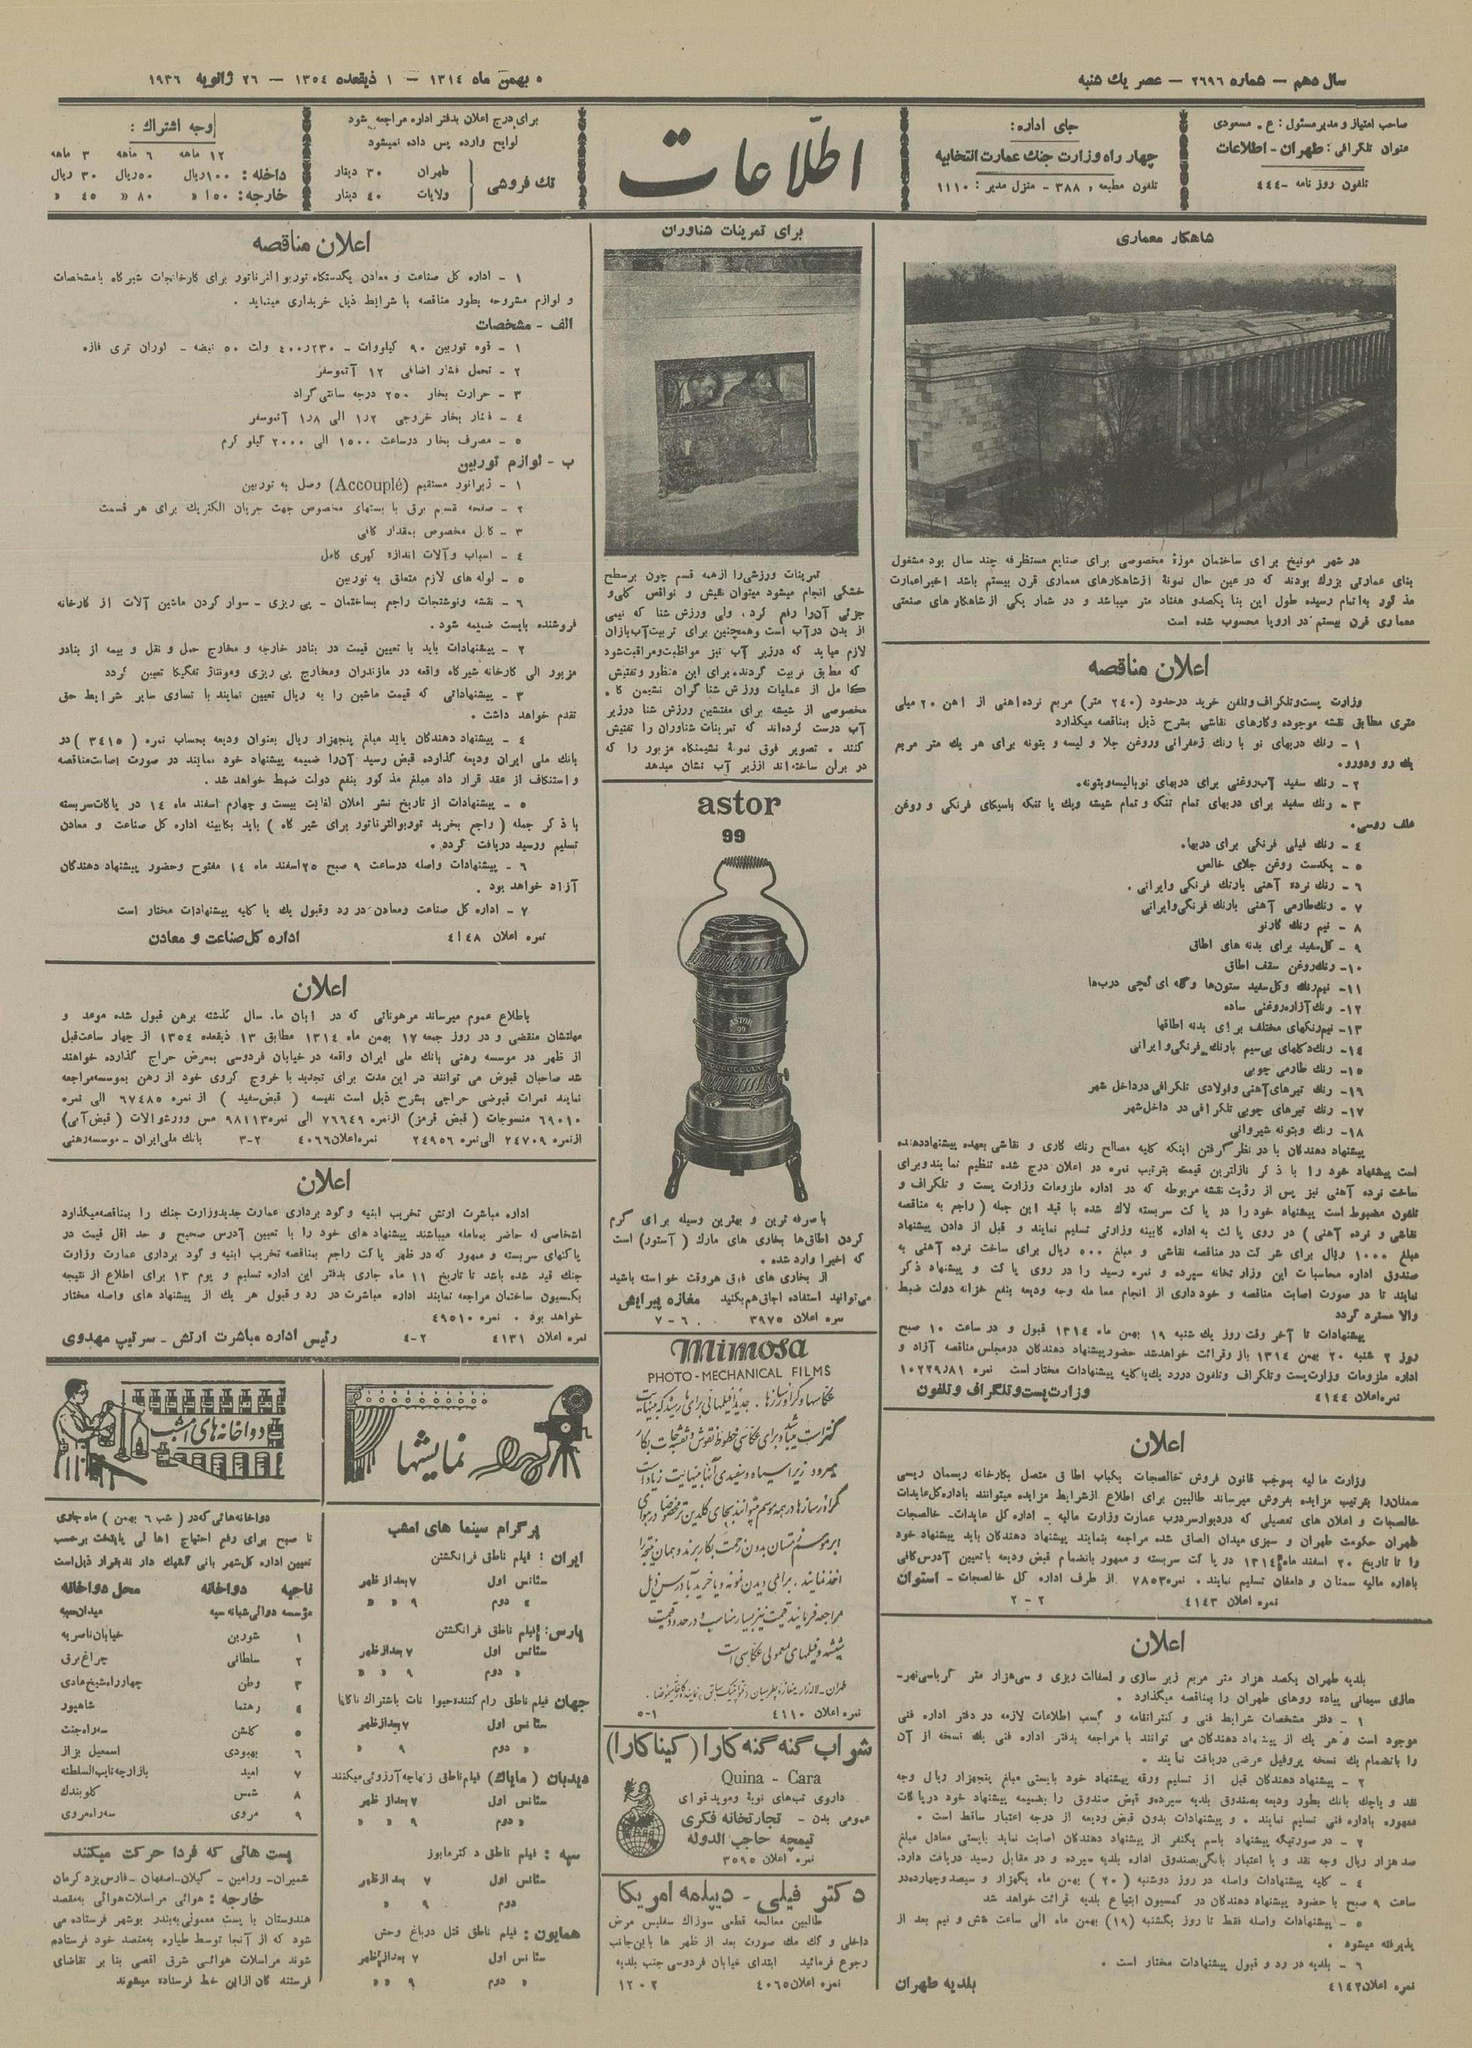 سال دهم — شماره ۲۶۹۶ — عصر یك شنبه
۵ بهمن ماه ۱۳۱٤ — ۱ ذیقعده ۱۳٥٤ — ۲٦ ژانویه ۱۹۳٦
صاحب امتیاز و مدیر مسئول : ع . مسعودی
عنوان تلگرافی : طهران - اطلاعات
تلفون روز نامه -٤٤٤
جای اداره :
چهار راه وزارت جنك عمارت انتخابیه
تلفون مطبعه ، ۳۸۸ - منزل مدیر : ۱۱۱۰
اطّلاعات
برای درج اعلان بدفتر اداره مراجعه شود
لوایح وارده پس داده نمیشود
تك فروشی
طهران ۳۰ دینار
ولایات ٤۰ دینار
وجه اشتراك :
۱۲ ماهه ٦ ماهه ۳ ماهه
داخله : ۱۰۰ریال ۵۰ریال ۳۰ ریال
خارجه : ۱۵۰ « ۸۰ « ٤۵ «
شاهكار معماری
در شهر مونیخ برای ساختمان موزهٔ مخصوصی برای صنایع مستظرفه چند سال بود مشغول
بنای عمارتی بزرك بودند كه در عین حال نمونهٔ ازشاهكارهای معماری قرن بیستم باشد اخیراعمارت
مذ كور به‌اتمام رسیده طول این بنا یكصدو هفتاد متر میباشد و در شمار یكی ازشاهكار های صنعتی
معماری قرن بیستم در اروپا محسوب شده است
اعلان مناقصه
وزارت پست‌وتلگراف‌وتلفن خرید درحدود (۲٤۰ متر) مربع نرده‌اهنی از اهن ۲۰ میلی
متری مطابق نقشه موجوده وكارهای نقاشی بشرح ذیل بمناقصه میگذارد
۱ - رنك دربهای نو با رنك زعفرانی وروغن جلا و لیسه و بتونه برای هر یك متر مربع
یك رو ودورو.
۲ - رنك سفید آب‌روغنی برای دربهای نوبالیسه‌وبتونه.
۳ - رنك سفید برای دربهای تمام تنكه و تمام شیشه ویك یا تنكه باسیكای فرنگی و روغن
علف روسی.
٤ - رنك فیلی فرنگی برای دربها.
۵ - یكدست روغن جلای خالص
٦ - رنك نرده آهنی بارنك فرنگی وایرانی .
۷ - رنك‌طارمی آهنی بارنك فرنگی‌وایرانی
۸ - نیم رنك كارنو
۹ - گل‌سفید برای بدنه های اطاق
۱۰- رنك‌روغن سقف اطاق
۱۱- نیم‌رنك وگل‌سفید ستون‌ها وگله ای گچی درب‌ها
۱۲- رنك‌آزاره‌روغنی ساده
۱۳- نیم‌رنگهای مختلف برای بدنه اطاقها
۱٤- رنك‌دكلهای بی‌سیم بارنك فرنگی‌وایرانی
۱۵- رنك طارمی چوبی
۱٦- رنك تیرهای‌آهنی وفولادی تلگرافی درداخل شهر
۱۷- رنك تیرهای چوبی تلگرافی در داخل‌شهر
۱۸- رنك وبتونه شیروانی
پیشنهاد دهندگان با در نظر گرفتن اینكه كلیه مصالح رنك كاری و نقاشی بعهده پیشنهاددهنده
است پیشنهاد خود را با ذكر نازلترین قیمت بترتیب نمره در اعلان درج شده تنظیم نمایندوبرای
ساخت نرده آهنی نیز پس از رؤیت نقشه مربوطه كه در اداره ملزومات وزارت پست و تلگراف و
تلفون مضبوط است پیشنهاد خود را در پا كت سربسته لاك شده با قید این جمله ( راجع به مناقصه
نقاشی و نرده آهنی ) در روی پا كت به اداره كابینه وزارتی تسلیم نمایند و قبل از دادن پیشنهاد
مبلغ ۱۰۰۰ ریال برای شركت در مناقصه نقاشی و مبلغ ۵۰۰ ریال برای ساخت نرده آهنی به
صندوق اداره محاسبات این وزار تخانه سپرده و نمره رسید را در روی پا كت و پیشنهاد ذكر
نمایند تا در صورت اصابت مناقصه و خودداری از انجام معا مله وجه ودیعه بنفع خزانه دولت ضبط
والا مسترد گردد
پیشنهادات تا آخر وقت روز یك شنبه ۱۹ بهمن ماه ۱۳۱٤ قبول و در ساعت ۱۰ صبح
روز ۲ شنبه ۲۰ بهمن ۱۳۱٤ باز وقرائت خواهدشد حضورپیشنهاد دهندگان درمجلس مناقصه آزاد و
اداره ملزومات وزارت‌پست وتلگراف وتلفون دررد یك‌یاكلیه پیشنهادات مختار است نمره ۱۰۲۲۹ر۸۱
نمره‌اعلان ٤۱٤٤ وزارت‌پست‌وتلگراف وتلفون
اعلان
وزارت ما لیه بموجب قانون فروش خالصجات یكباب اطاق متصل بكارخانه ریسمان ریسی
سمنان‌را بترتیب مزایده بفروش میرساند طالبین برای اطلاع ازشرایط مزایده میتوانند باداره‌كل‌عایدات
خالصجات و اعلان های تفصیلی كه دردیوارسردرب عمارت وزارت مالیه - اداره كل عایدات- خالصجات
طهران حكومت طهران و سبزی میدان الصاق شده مراجعه بنمایند پیشنهاد دهندگان باید پیشنهاد خود
را تا تاریخ ۲۰ اسفند ماه ۱۳۱٤ در پا كت سربسته و ممهور بانضمام قبض ودیعه باتعیین آدرس‌كافی
باداره مالیه سمنان و دامغان تسلیم نمایند . نمره ۷۸٥۳ از طرف اداره كل خالصجات - استوان
نمره اعلان ٤۱٤۳ ۲ - ۲
اعلان
بلدیه طهران یكصد هزار متر مربع زیر سازی و اسفالت ریزی و سی‌هزار متر كرباسی‌نهر-
سازی سیمانی پیاده روهای طهران را بمناقصه میگذارد .
۱ - دفتر مشخصات شرایط فنی و كنتراتنامه و كسب اطلاعات لازمه در دفتر اداره فنی
موجود است و هر یك از پیشنهاد دهندگان می توانند با مراجعه بدفتر اداره فنی یك نسخه از آن
را بانضمام یك نسخه پروفیل عرضی دریافت نمایند .
۲ - پیشنهاد دهندگان قبل از تسلیم ورقه پیشنهاد خود بایستی مبلغ پنجهزار ریال وجه
نقد و یاچك بانك بطور ودیعه بصندوق بلدیه سپرده‌و قبض صندوق را بضمیمه پیشنهاد خود درپا كات
ممهوره باداره فنی تسلیم نمایند . و پیشنهادات بدون قبض ودیعه از درجه اعتبار ساقط است .
۳ - در صورتیكه پیشنهاد باسم یكنفر از پیشنهاد دهندگان اصابت نماید بایستی معادل مبلغ
صد هزار ریال وجه نقد و یا اعتبار بانگی‌بصندوق اداره بلدیه سپرده و در مقابل رسید دریافت دارد.
٤ - كلیه پیشنهادات واصله در روز دوشنبه ( ۲۰ ) بهمن ماه یكهزار و سیصدوچهارده‌در
ساعت ۹ صبح با حضود پیشنهاد دهندگان در كمسیون ابتیاع بلدیه قرائت خواهد شد
۵ - پیشنهادات واصله فقط تا روز یكشنبه (۱۹) بهمن ماه الی ساعت شش و نیم بعد از
پذیرفته میشود .
٦ - بلدیه در رد و قبول پیشنهادات مختار است .
نمره اعلان٤۱٤۲ بلدیه طهران
برای تمرینات شناوران
تمرینات ورزشی‌را ازهمه قسم چون برسطح
خشكی انجام میشود میتوان نقیش و نواقص كلی‌و
جزئی آن‌را رفع كرد، ولی ورزش شنا كه نیمی
از بدن درآب است وهمچنین برای تربیت‌آب‌بازان
لازم میاید كه درزیر آب نیز مواظبت‌ومراقبت‌شود
كه مطابق تربیت گردند.برای این منظور وتفتیش
كا مل از عملیات ورزش شنا گران نشیمن گا .
مخصوصی از شیشه برای مفتشین ورزش شنا درزیر
آب درست كرده‌اند كه تمرینات شناوران را تفتیش
كنند . تصویر فوق نمونهٔ نشیمنگاه مزبور را كه
در برلن ساخته‌اند اززیر آب نشان میدهد
astor
99
ASTOR
99
باصرفه ترین و بهترین وسیله برای گرم
كردن اطاق‌ها بخاری های مارك ( آستور) است
كه اخیرا وارد شده .
از بخاری های فوق هروقت خواسته باشید
می‌توانید استفاده اجاق‌هم‌بكنید مغازه پیرایش
نمره اعلان ۳۹۷۵ ٦ - ۷
Mimosa
PHOTO-MECHANICAL FILMS
نمره اعلان ٤۱۱۰ ۱-۵
شراب گنه گنه كارا (كیناكارا)
Quina - Cara
داروی تب‌های نوبهٔ ومویدقوای
عمومی بدن - تجارتخانه فكری
تیمچه حاجب الدوله
نمره اعلان ۳۵۹۵
دكتر فیلی - دیپلمه امریكا
طالبین معالجه قطعی سوزاك سفلیس مرض
داخلی و كك مك صورت بعد از ظهر ها باین‌جانب
رجوع فرمائید ابتدای خیابان فردوسی جنب بلدیه
نمره اعلان٤۰٦۵ ۲ـ۱۲۰
اعلان مناقصه
۱ - اداره كل صناعت و معادن یكدستگاه توربوالترناتور برای كارخانجات شیرگاه بامشخصات
و لوازم مشروحه بطور مناقصه با شرایط ذیل خریداری مینماید .
الف - مشخصات
۱ - قوه توربین ۹۰ كیلووات - ۲۳۰ر٤۰۰ ولت ۵۰ نبضه - لوران تری فازه
۲ - تحمل فشار اضافی ۱۲ آتموسفر
۳ - حرارت بخار ۲۵۰ درجه سانتی‌گراد
٤ - فشار بخار خروجی ۱ر۲ الی ۱ر۸ آتموسفر
۵ - مصرف بخار درساعت ۱۵۰۰ الی ۲۰۰۰ كیلو گرم
ب - لوازم توربین
۱ - ژنراتور مستقیم (Accouplé) وصل به توربین
۲ - صفحه تقسیم برق با بستهای مخصوص جهت جریان الكتریك برای هر قسمت
۳ - كابل مخصوص بمقدار كافی
٤ - اسباب وآلات اندازه گیری كامل
۵ - لوله های لازم متعلق به توربین
٦ - نقشه ونوشتجات راجع بساختمان - پی ریزی - سوار كردن ماشین آلات از كارخانه
فروشنده بایست ضمیمه شود .
۲ - پیشنهادات باید با تعیین قیمت در بنادر خارجه و مخارج حمل و نقل و بیمه از بنادر
مزبور الی كارخانه شیرگاه واقعه در مازندران ومخارج پی ریزی ومونتاژ تفكیكا تعیین گردد
۳ - پیشنهاداتی كه قیمت ماشین را به ریال تعیین نمایند با تساوی سایر شرایط حق
تقدم خواهد داشت .
٤ - پیشنهاد دهندگان باید مبلغ پنجهزار ریال بعنوان ودیعه بحساب نمره ( ۳٤۱۵ ) در
بانك ملی ایران ودیعه گذارده قبض رسید آن‌را ضمیمه پیشنهاد خود نمایند در صورت اصابت‌مناقصه
و استنكاف از عقد قرار داد مبلغ مذ كور بنفع دولت ضبط خواهد شد .
۵ - پیشنهادات از تاریخ نشر اعلان لغایت بیست و چهارم اسفند ماه ۱٤ در پاكات‌سربسته
با ذكر جمله ( راجع بخرید توربوالترناتور برای شیر گاه ) باید بكابینه اداره كل صناعت و معادن
تسلیم ورسید دریافت گردد .
٦ - پیشنهادات واصله درساعت ۹ صبح ۲۵اسفند ماه ۱٤ مفتوح وحضور پیشنهاد دهندگان
آزاد خواهد بود .
۷ - اداره كل صناعت ومعادن در رد وقبول یك یا كلیه پیشنهادات مختار است
نمره اعلان ٤۱٤۸ اداره كل‌صناعت و معادن
اعلان
باطلاع عموم میرساند مرهوناتی كه در ابان ما. سال گذشته برهن قبول شده موعد و
مهلتشان منقضی و در روز جمعه ۱۷ بهمن ماه ۱۳۱٤ مطابق ۱۳ ذیقعده ۱۳٥٤ از چهار ساعت‌قبل
از ظهر در موسسه رهنی بانك ملی ایران واقعه در خیابان فردوسی بمعرض حراج گذارده خواهند
شد صاحبان قبوض می توانند در این مدت برای تجدید یا خروج گروی خود از رهن بموسسه‌مراجعه
نمایند نمرات قبوضی حراجی بشرح ذیل است نفیسه ( قبض‌سفید ) از نمره ٦۷٤۸۵ الی نمره
٦۹۰۱۰ منسوجات ( قبض قرمز) ازنمره ۷٦٦٤۹ الی نمره۹۸۱۱۳ مس وورشوالات (قبض‌آبی)
ازنمره ۲٤۷۰۹ الی‌نمره ۲٤۹۵٦ نمره‌اعلان٤۰٦٦ ۲-۳ بانك ملی‌ایران - موسسه‌رهنی
اعلان
اداره مباشرت ارتش تخریب ابنیه و گود برداری عمارت جدیدوزارت جنك را بمناقصه‌میگذارد
اشخاصی كه حاضر بمعامله میباشند پیشنهاد های خود را با تعیین آدرس صحیح و حد اقل قیمت در
پاكتهای سربسته و ممهور كه در ظهر پا كت راجع بمناقصه تخریب ابنیه و گود برداری عمارت وزارت
جنك قید شده باشد تا تاریخ ۱۱ ماه جاری بدفتر این اداره تسلیم و یوم ۱۳ برای اطلاع از نتیجه
بكمسیون ساختمان مراجعه نمایند اداره مباشرت در رد و قبول هر یك از پیشنهاد های واصله مختار
خواهد بود . نمره ٤۹۵۱۰
نمره اعلان ٤۱۳۱ ۲-٤ رئیس اداره مباشرت ارتش - سرتیپ مهدوی
نمایشها
پرگرام سینما های امشب
ایران : فیلم ناطق فرانگشتن
سئانس اول ۷بعداز ظهر
« دوم ۹ « «
پارس: فیلم ناطق فرانگشتن
سئانس اول ۷ بعدازظهر
« دوم ۹ « «
جهان فیلم ناطق رام كننده‌حیوا نات باشتراك ناگایا
سئانس اول ۷ بعدازظهر
« دوم ۹ «
دیدبان ( مایاك) فیلم‌ناطق ز نهاچه‌آرزوئی‌میكنند
سئانس اول ۷ بعداز ظهر
« دوم ۹ « «
سپه : فیلم ناطق دكترمابوز
سئانس اول ۷ بعدازظهر
دوم ۹ «
همایون : فیلم ناطق قتل درباغ وحش
سئانس اول ۷ بعدازظهر
« دوم ۹ « «
دواخانه‌های امشب
دواخانه‌هائی كه‌در ( شب ٦ بهمن ) ماه جاری
تا صبح برای رفع احتیاج اها لی پایتخت برحسب
تعیین اداره كل‌شهر بانی كشیك دار ند بقرار ذیل‌است
ناحیه دواخانه محل دواخانه
مؤسسه دوائی‌شبانه سپه میدان‌سپه
۱ شورین خیابان‌ناصریه
۲ سلطانی چراغ‌برق
۳ وطن چهارراه‌شیخ‌هادی
٤ رهنما شاهپور
۵ گلشن سه‌راه‌جنت
٦ بهبودی اسمعیل بزاز
۷ امید بازارچه‌نایب‌السلطنه
۸ شمس گلوبندك
۹ مروی سه‌راه‌مروی
پست هائی كه فردا حركت میكنند
شمیران- ورامین - گیلان-اصفهان -فارس‌یزد كرمان
خارجه : هوائی مراسلات‌هوائی به‌مقصد
هندوستان با پست معمولی‌به‌بندر بوشهر فرستاده می
شود كه از آنجا توسط طیاره به‌مقصد خود فرستاده
شوند مراسلات هوائی شرق اقصی بنا بر تقاضای
فرستنه گان ازاین خط فرستاده میشوند